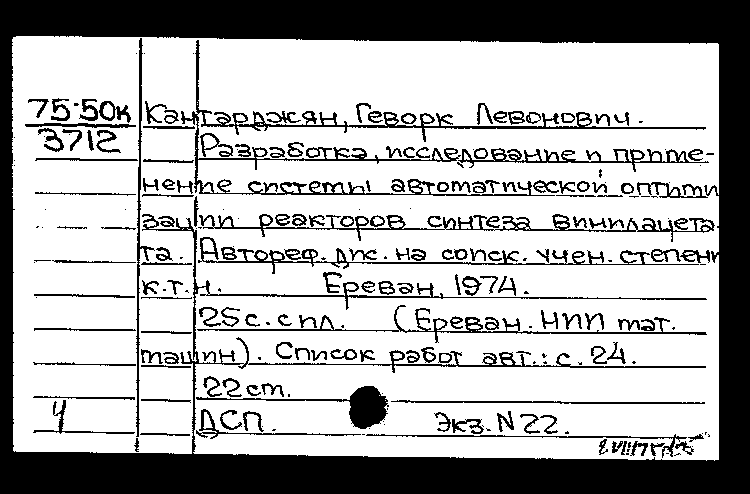 75-50к Кантарджян, Геворк Левонович.
3712 Разработка, исследование и приме-
нение системы автоматической оптими
зации реакторов синтеза винилацета-
та. Автореф. дис. на соиск. учен. степени
к.т.н. Ереван, 1974.
25 с. с ил. (Ереван. НИИ мат.
машин). Список работ авт.: с. 24.
22 ст.
Ч ДСП. Экз. N 22.